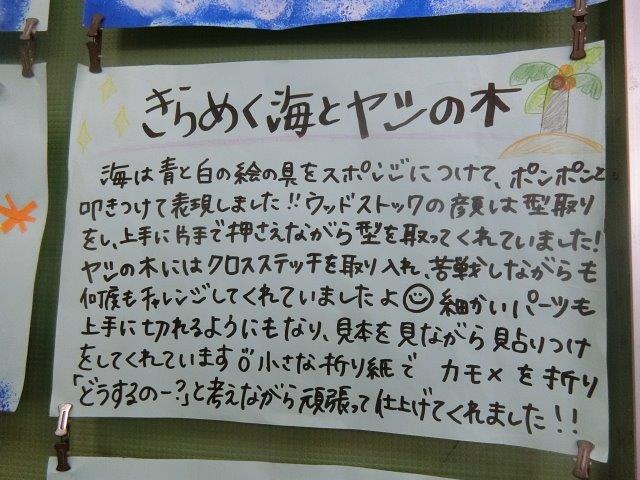 きらめく海とヤシの木
海は青と白の絵の具をスポンジにつけて、ポンポンと
叩きつけて表現しました!!ウッドストックの顔は型取り
をし、上手に片手で押さえながら型を取ってくれていました!
ヤシの木にはクロスステッチを取り入れ、苦戦しながらも
何度もチャレンジしてくれていましたよ☺細かいパーツも
上手に切れるようにもなり、見本を見ながら貼りつけ
をしてくれています 小さな折り紙で カモメを折り
「どうするのー?」と考えながら頑張って仕上げてくれました!!